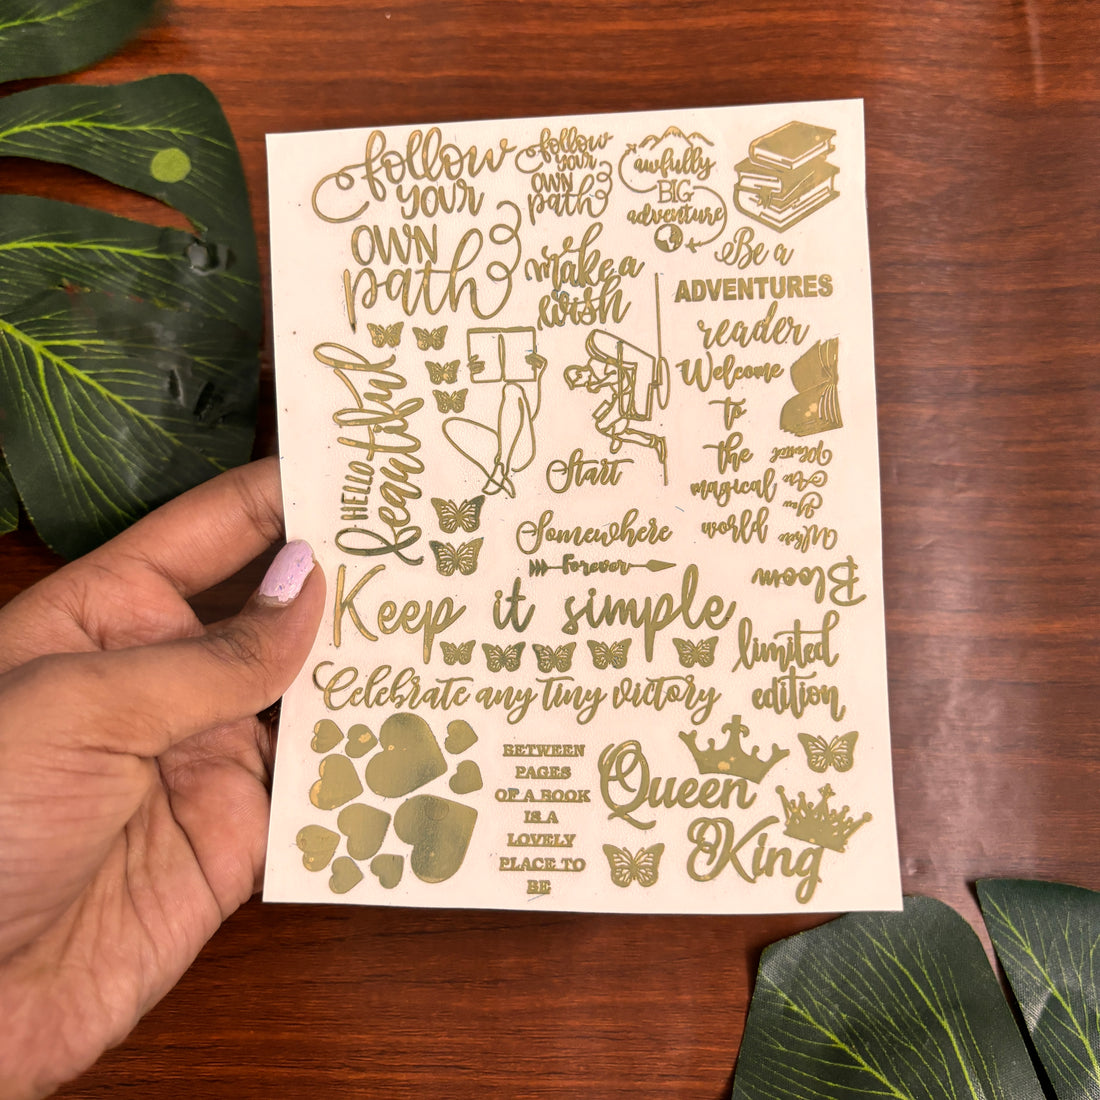 follow
your
OWN
path
follow
your
OWN
path
awfully
BIG
adventure
Be a
ADVENTURES
reader
make a
wish
HELLO
beautiful
Start
Welcome
to
the
magical
world
When
You
Are
Bloom
Somewhere
Forever
Keep it simple
limited
edition
Celebrate any tiny victory
BETWEEN
PAGES
OF A BOOK
IS A
LOVELY
PLACE TO
BE
Queen
King